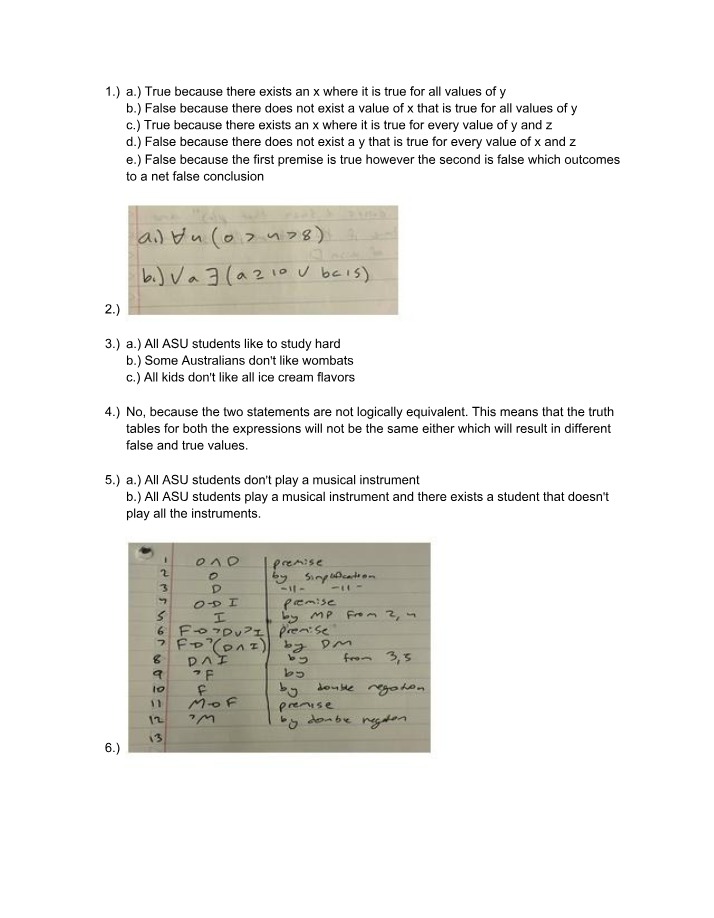 1.) a.) True because there exists an x where it is true for all values of y
b.) False because there does not exist a value of x that is true for all values of y
c.) True because there exists an x where it is true for every value of y and z
d.) False because there does not exist a y that is true for every value of x and z
e.) False because the first premise is true however the second is false which outcomes
to a net false conclusion
a.) ∀n (0 > n > 8)
b.) ∀a ∃ (a ≥ 10 ∨ b<15)
2.)
3.) a.) All ASU students like to study hard
b.) Some Australians don't like wombats
c.) All kids don't like all ice cream flavors
4.) No, because the two statements are not logically equivalent. This means that the truth
tables for both the expressions will not be the same either which will result in different
false and true values.
5.) a.) All ASU students don't play a musical instrument
b.) All ASU students play a musical instrument and there exists a student that doesn't
play all the instruments.
1 O ∧ D premise
2 O by simplification
3 D -11- -11-
4 O → I premise
5 I by MP from 2, 4
6 F → ¬D ∨ ¬I premise
7 F → ¬(D ∧ I) by DM
8 D ∧ I by from 3,5
9 ¬F by
10 F by double negation
11 M → F premise
12 ¬M by double negation
13
6.)